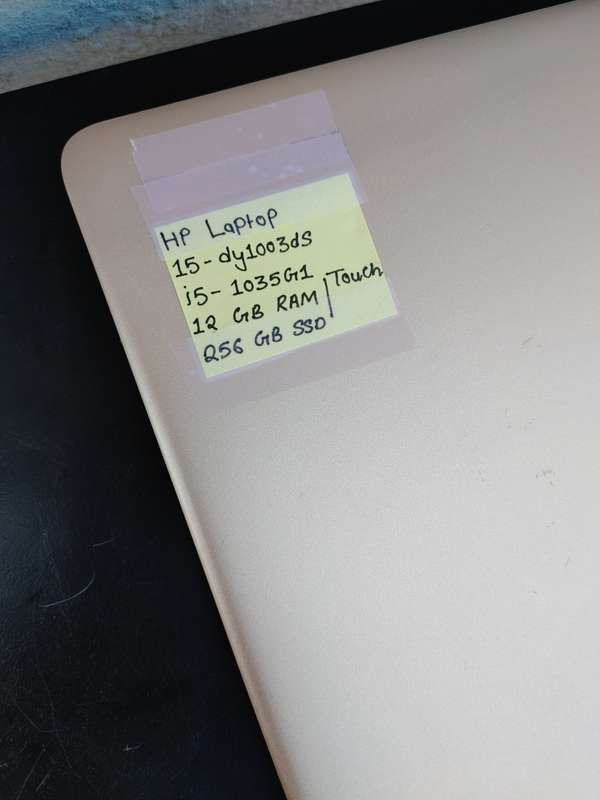 HP Laptop
15-dy1003dS
i5-1035G1
12 GB RAM | Touch
256 GB SSD